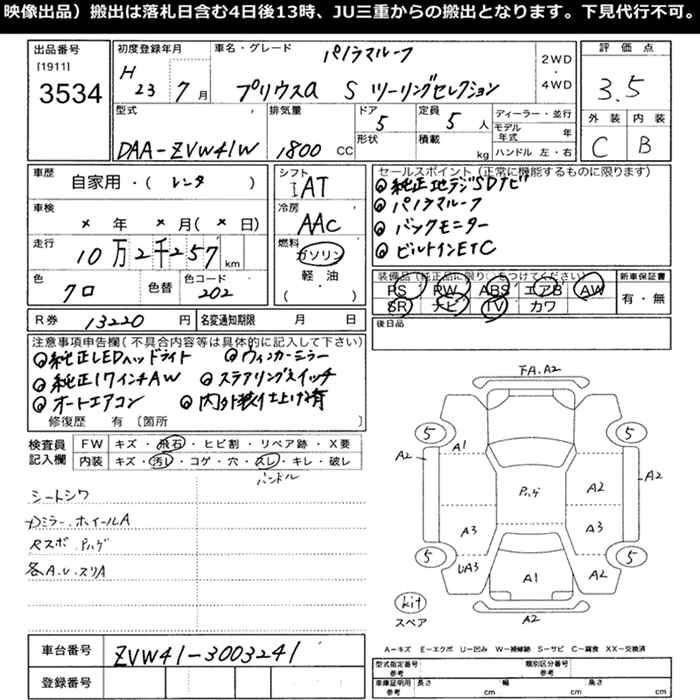 映像出品）搬出は落札日含む4日後13時、JU三重からの搬出となります。下見代行不可。
出品番号
[1911]
3534
初度登録年月
H 23 7月
車名・グレード
パノラマルーフ
プリウスα S ツーリングセレクション
2WD
・
4WD
評価点
3.5
外装 内装
C B
型式
DAA-ZVW41W
排気量
1800 CC
ドア 5
形状
定員 5 人
積載 kg
ディーラー・並行
モデル年式 年
ハンドル 左・右
車歴
自家用・( レンタ )
車検
× 年 × 月( × 日)
走行
10万2千257 km
色
クロ
色替
色コード
202
シフト
IAT
冷房
AAC
燃料
ガソリン
軽・油
( )
セールスポイント（正常に機能するものに限ります）
純正地デジSDナビ
パノラマルーフ
バックモニター
ビルトインETC
装備品（純正品に限り○をつけてください）
PS PW ABS エアB AW
SR ナビ TV カワ
新車保証書
有・無
R券 13220 円
名変通知期限 月 日
後日品
注意事項申告欄(不具合内容等は具体的に記入して下さい)
純正LEDヘッドライト ウィンカーミラー
純正17インチAW ステアリングスイッチ
オートエアコン 内外装仕上げ済
修復歴 有〔箇所 〕
検査員記入欄
FW キズ・飛石・ヒビ割・リペア跡・X要
内装 キズ・汚レ・コゲ・穴・スレ・キレ・破レ
ハンドル
シートシワ
ミラー.ホイールA
Rスポ.ハゲ
各A.U.スリA
FA.A2
5 5
A1
A2 A2
ハゲ A2
A3 A3
5 5
UA3 A1 A2
kit
スペア
A2
A－キズ E－エクボ U－凹み W－補修跡 S－サビ C－腐食 XX－交換済
車台番号
ZVW41-3003241
登録番号
型式指定番号
参考
類別区分番号
参考
車庫証明用
参考
長さ cm 幅 cm 高さ cm